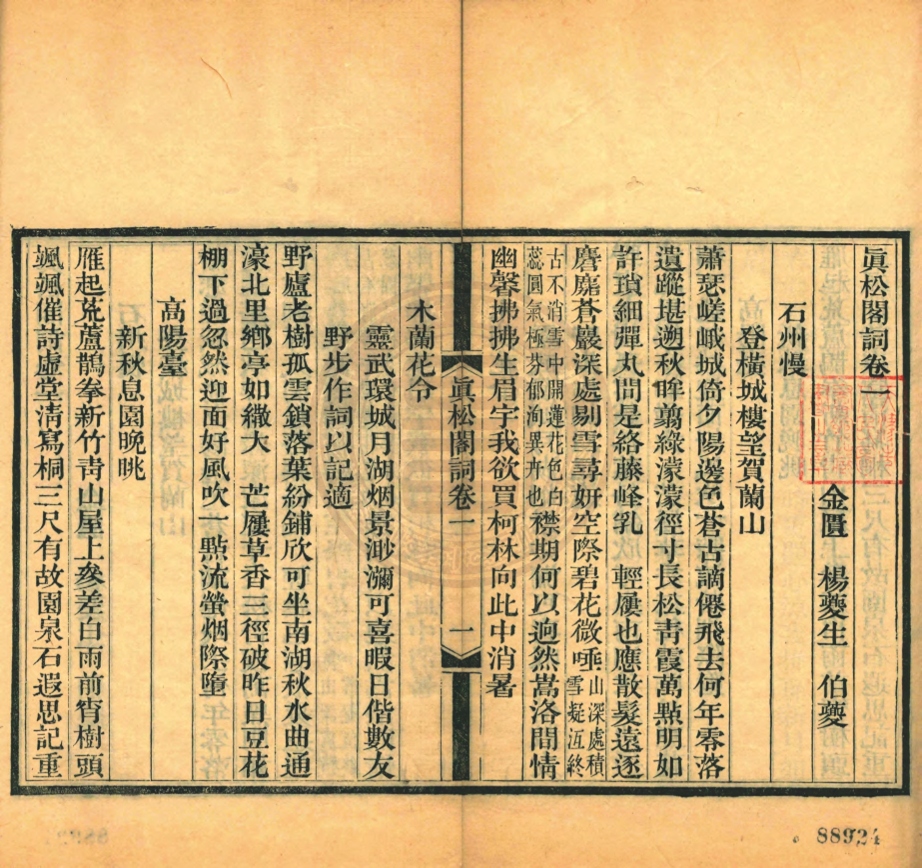 眞松閣詞卷一
金匱　楊夔生　伯夔
石州慢
登橫城樓望賀蘭山
蕭瑟嵯峨城倚夕陽邊色蒼古謫僊飛去何年零落
遺蹤堪遡秋眸翦綠濛濛徑寸長松靑霞萬點明如
許瑣細彈丸問是絡藤峰乳　輕屨也應散髮遠逐
麏麃蒼巖深處剔雪尋妍空際碧花微唾山深處積雪擬沍終
古不消雪中開蓮花色白蕊圓氣極芬郁洵異卉也襟期何以逈然嵩洛間情
幽馨拂拂生眉宇我欲買柯林向此中消暑
眞松閣詞卷一　一
木蘭花令
靈武環城月湖烟景渺瀰可喜暇日偕數友
野步作詞以記適
野廬老樹孤雲鎖落葉紛鋪欣可坐南湖秋水曲通
濠北里鄉亭如繖大　芒屨草香三徑破昨日豆花
棚下過忽然迎面好風吹一點流螢烟際墮
高陽臺
新秋息園晚眺
雁起荒蘆鵲拳新竹靑山屋上參差白雨前宵樹頭
颯颯催詩虛堂淸寫桐三尺有故園泉石遐思記重
88924